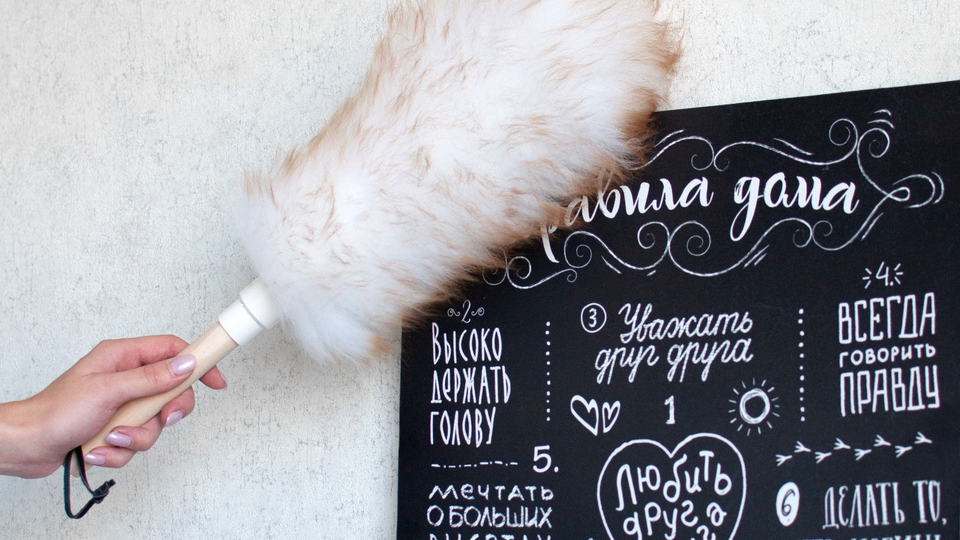 равила дома
2
Высоко
держать
голову
3
Уважать
друг друга
4.
Всегда
говорить
правду
1
Любить
друга
5.
мечтать
о больших
6
делать то,